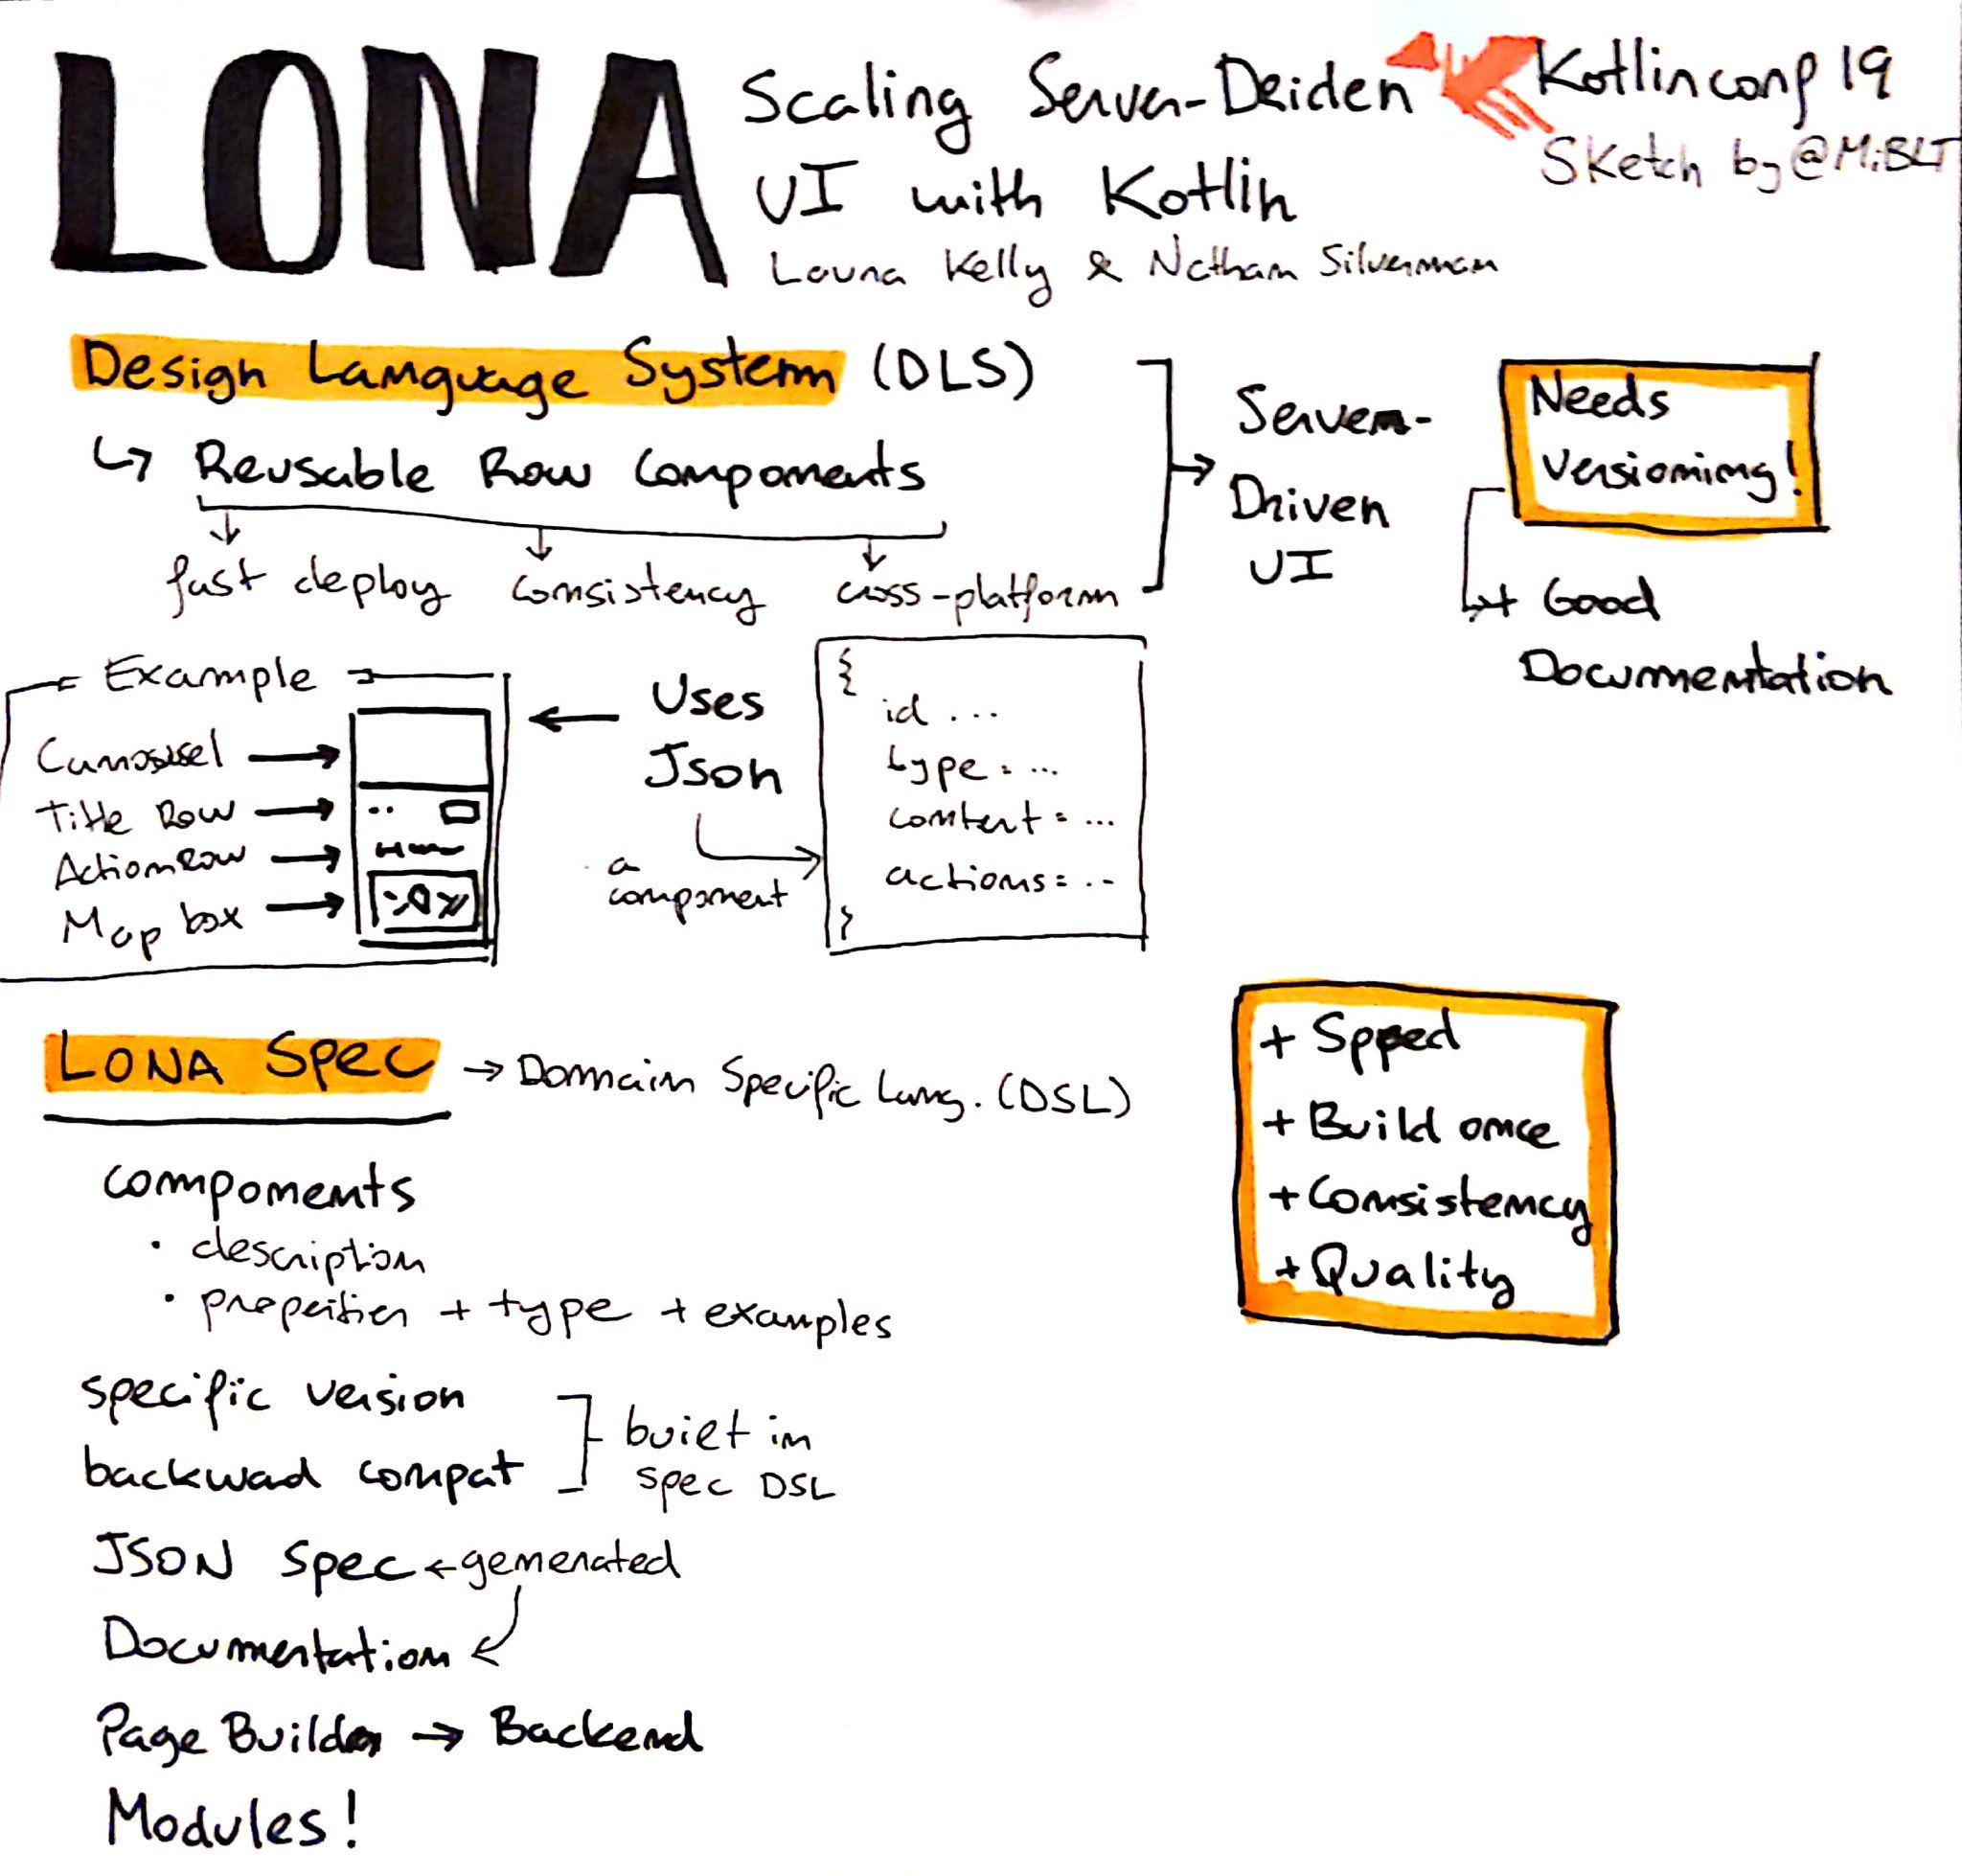 LONA
Scaling Server-Driden
UI with Kotlin
Laura Kelly & Nathan Silverman
Kotlinconf 19
Sketch by @MiBLT
Design Language System (DLS)
↳ Reusable Row Components
fast deploy consistency cross-platform
Server-
Driven
UI
Needs
versioning!
↳ Good
Documentation
Example
Carousel →
Title Row →
Action Row →
Map box →
← Uses
Json
a
component
{
id ...
type = ...
content = ...
actions = ..
}
LONA Spec → Domain Specific Lang. (DSL)
components
· description
· properties + type + examples
specific version
backwad compat
built in
spec DSL
JSON Spec ← generated
Documentation
Page Builder → Backend
Modules!
+ Spped
+ Build once
+ Consistency
+ Quality